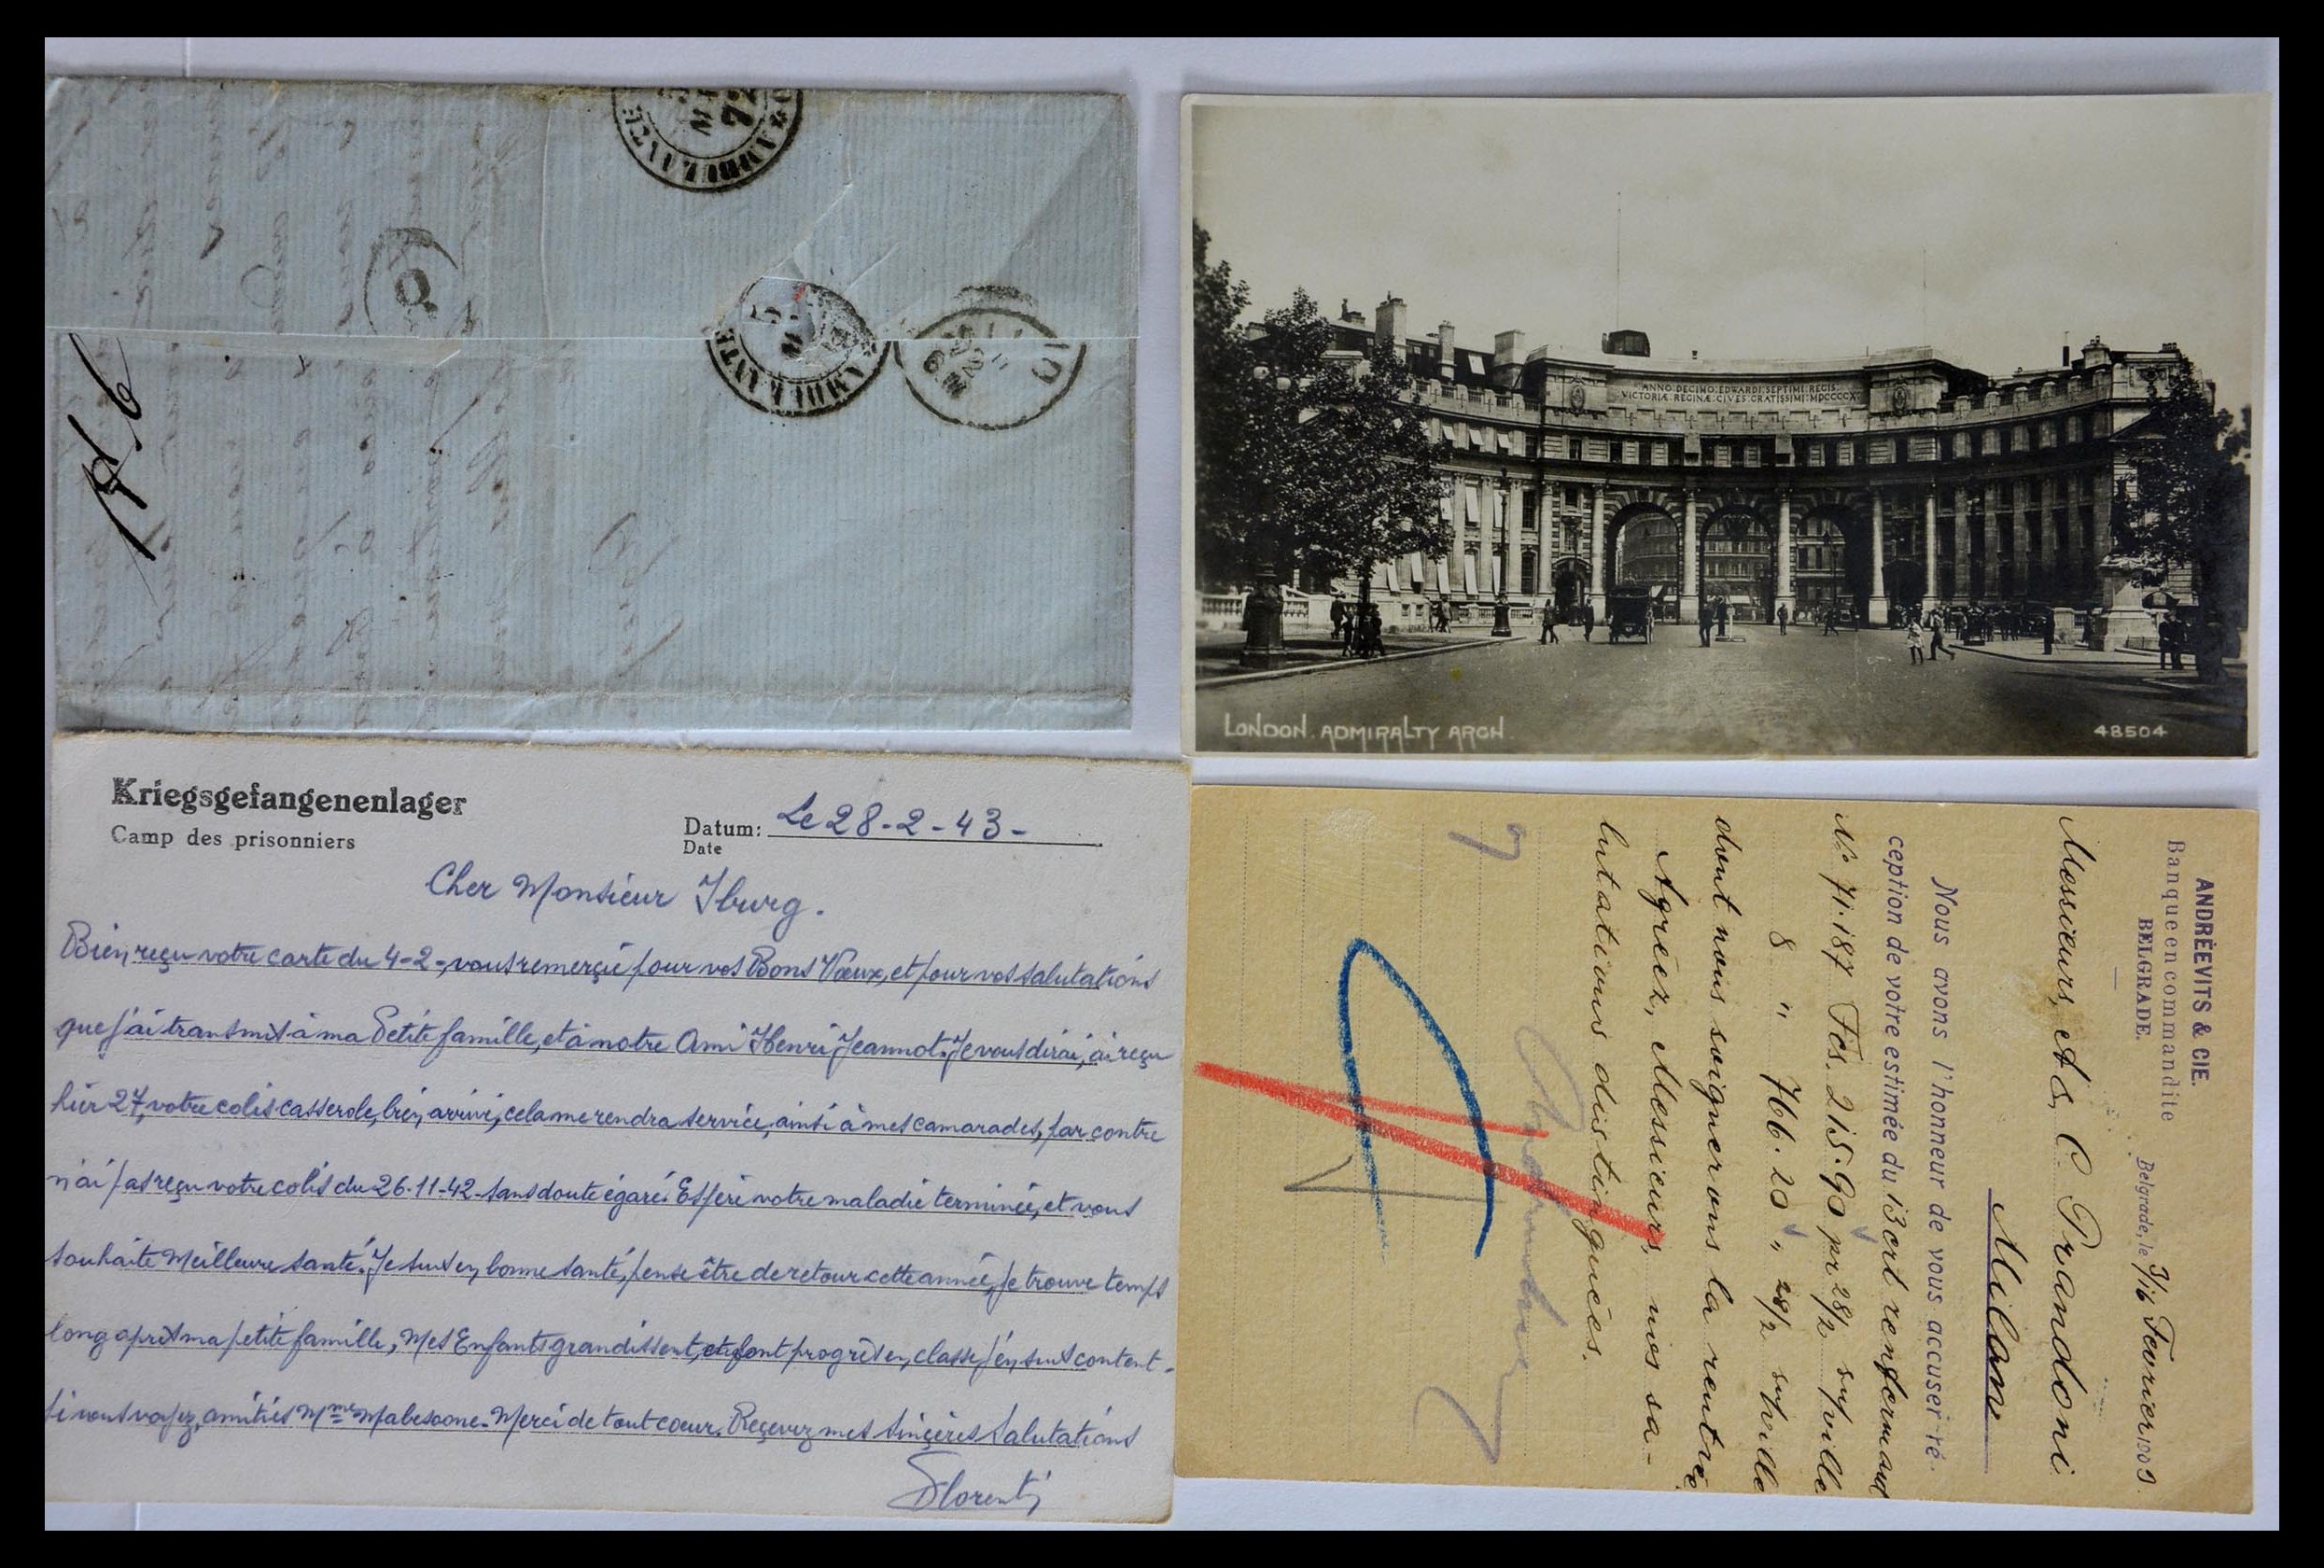 AMBULANTE
72
Q
AMBULANTE
LONDON. ADMIRALTY ARCH.
48504
ANNO DECIMO EDWARDI SEPTIMI REGIS
VICTORIÆ REGINÆ CIVES GRATISSIMI MDCCCCX
Kriegsgefangenenlager
Camp des prisonniers
Datum: Le 28-2-43-
Date
Cher Monsieur Iburg.
Bien reçu votre carte du 4-2-, vous remerçie pour vos Bons Vœux, et pour vos salutations
que j'ai transmis à ma Petite famille, et à notre Ami Henri Jeannot. Je vous dirai, ai reçu
hier 27, votre colis casserole, bien arrivé, cela me rendra service, ainsi à mes camarades, par contre
n'ai pas reçu votre colis du 26-11-42- sans doute égaré. Espère votre maladie terminée, et vous
souhaite Meilleure santé. Je suis en bonne santé, pense être de retour cette année, je trouve temps
long après ma petite famille, Mes Enfants grandissent, et font progrès en classe, j'en suis content-
Si vous voyez, amitiés Mme Mabesoone. Merci de tout cœur. Reçevez mes sinçères salutations
Florent
ANDRÈEVITS & CIE.
Banque en commandite
BELGRADE.
Belgrade, le 3/16 Fevrier 1909.
Messieurs A & C. Prandoni
Milan
Nous avons l'honneur de vous accuser ré-
ception de votre estimée du 13 crt renfermant
No 71.187 Fcs. 215.90 pr 28/2 s/ville
8 " 766.20 " 28/2 s/ville
dont nous soignerons la rentrée,
Agréez, Messieurs, nos sa-
lutations distinguées.